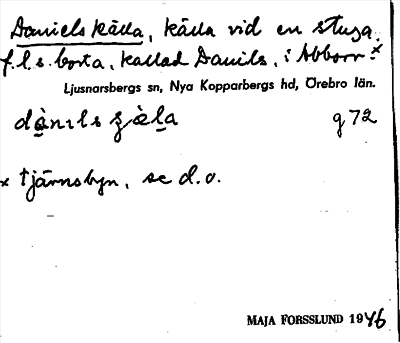 Daniels källa, källa vid en stuga
f.l.s. borta, kallad Daniels, i Abborr-×
Ljusnarsbergs sn, Nya Kopparbergs hd, Örebro län.
dànıls
g 72
× tjärnsbyn, se d.o.
MAJA FORSSLUND 1946